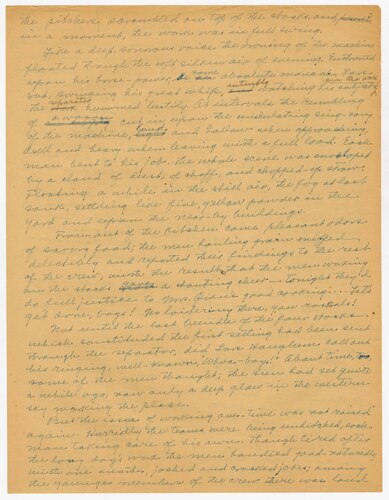 the pitchers scrambled on top of the stacks, and presently
in a moment, the work was in full swing.
Like a deep, sonorous voice the droning of the machine
floated through the soft silven air of evening. Enthroned
upon his horse-power, as some absolute monarch, Lars
sat, swinging his great whip, and watching his subjects;
the separator hummed lustily. At intervals the rumbling
of a wagon cut in upon the undulating sing-song
of the machine, loud and hollow when approaching,
dull and heavy when leaving with a full load. Each
man bent to his job. The whole scene was enveloped
by a cloud of dust, of chaff, and chopped-up straw.
Floating a while in the still air, the fog at last
sank, settling like fine, yellow powder in the
yard and upon the near-by buildings.
From out of the kitchen came pleasant odors
of savory food; the men hauling grain sniffed
delicately and reported their findings to the rest
of the crew, with the result that the men working
on the stacks a shouting cheer — tonight they'd
do full justice to Mrs. good cooking... Let's
get done, boys! No loitering there, you rascals!
Not until the last bundle of the four stacks
which constituted the first setting had been sent
through the separator, did Lars call out
his ringing, well-known, "Whoa-boys!" About time, too,
some of the men thought; the sun had set quite
a while ago, now only a deep glow in the western
sky marking the place.
But the issue of working over-time was not raised
again. Hurriedly the teams were being unhitched, each
man taking care of his own. Though tired after
the long day's work the men bandied good-naturedly
with one another, joshed and cracked jokes; among
the younger members of the crew there was loud